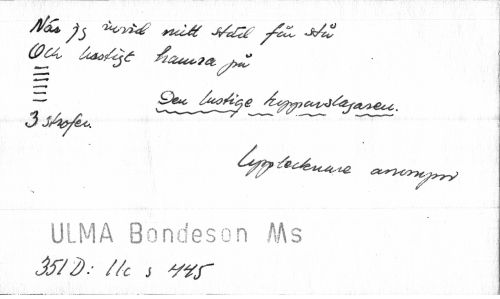 När jg invid mitt städ får stå
Och hastigt hamra på
Den lustige kopparslagaren.
3 strofer.
Upptecknare anonym
ULMA Bondeson Ms
351 D: 11c s 445